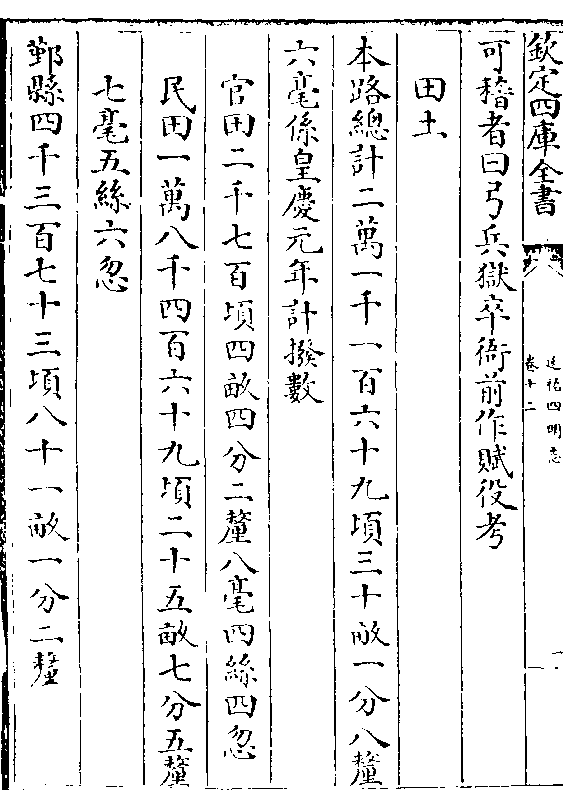 欽定四庫全書
延祐四明志
卷十二
一
可稽者曰弓兵獄卒衙前作賦役考
田土
本路總計二萬一千一百六十九頃三十畝一分八釐
六毫係皇慶元年計撥數
官田二千七百頃四畝四分二釐八毫四絲四忽
民田一萬八千四百六十九頃二十五畝七分五釐
七毫五絲六忽
鄞縣四千三百七十三頃八十一畝一分二釐